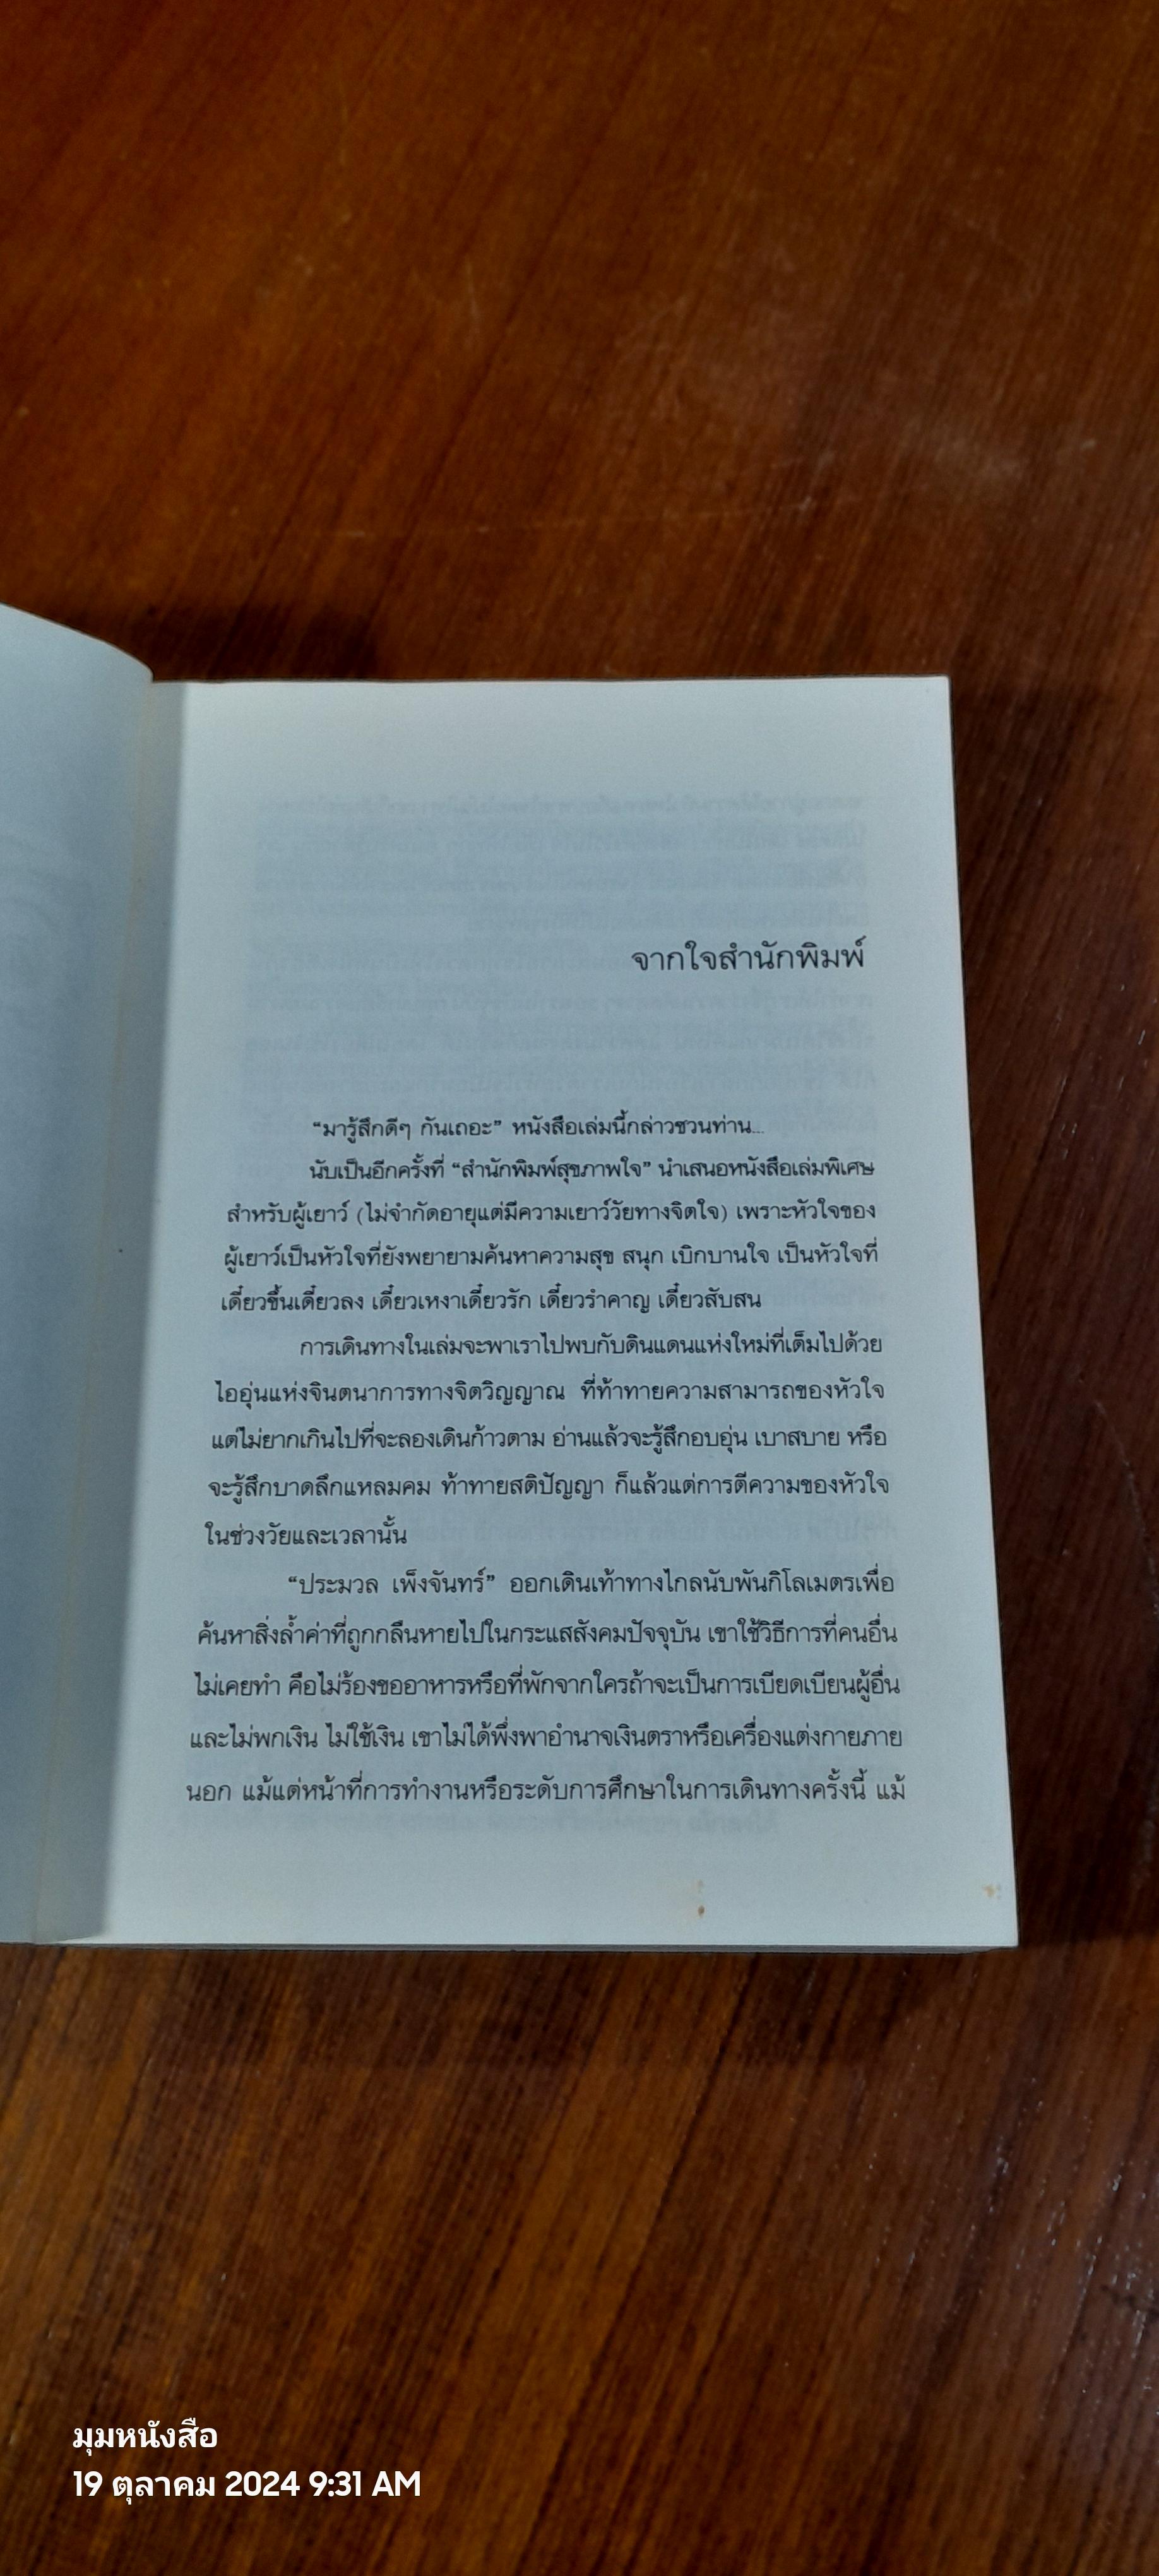 จากใจสำนักพิมพ์
“มารู้สึกดีๆ กันเถอะ” หนังสือเล่มนี้กล่าวชวนท่าน...
นับเป็นอีกครั้งที่ “สำนักพิมพ์สุขภาพใจ” นำเสนอหนังสือเล่มพิเศษ
สำหรับผู้เยาว์ (ไม่จำกัดอายุแต่มีความเยาว์วัยทางจิตใจ) เพราะหัวใจของ
ผู้เยาว์เป็นหัวใจที่ยังพยายามค้นหาความสุข สนุก เบิกบานใจ เป็นหัวใจที่
เดี๋ยวขึ้นเดี๋ยวลง เดี๋ยวเหงาเดี๋ยวรัก เดี๋ยวรำคาญ เดี๋ยวสับสน
การเดินทางในเล่มจะพาเราไปพบกับดินแดนแห่งใหม่ที่เต็มไปด้วย
ไออุ่นแห่งจินตนาการทางจิตวิญญาณ ที่ท้าทายความสามารถของหัวใจ
แต่ไม่ยากเกินไปที่จะลองเดินก้าวตาม อ่านแล้วจะรู้สึกอบอุ่น เบาสบาย หรือ
จะรู้สึกบาดลึกแหลมคม ท้าทายสติปัญญา ก็แล้วแต่การตีความของหัวใจ
ในช่วงวัยและเวลานั้น
“ประมวล เพ็งจันทร์” ออกเดินเท้าทางไกลนับพันกิโลเมตรเพื่อ
ค้นหาสิ่งล้ำค่าที่ถูกกลืนหายไปในกระแสสังคมปัจจุบัน เขาใช้วิธีการที่คนอื่น
ไม่เคยทำ คือไม่ร้องขออาหารหรือที่พักจากใครถ้าจะเป็นการเบียดเบียนผู้อื่น
และไม่พกเงิน ไม่ใช้เงิน เขาไม่ได้พึ่งพาอำนาจเงินตราหรือเครื่องแต่งกายภาย
นอก แม้แต่หน้าที่การทำงานหรือระดับการศึกษาในการเดินทางครั้งนี้ แม้
มุมหนังสือ
19 ตุลาคม 2024 9:31 AM